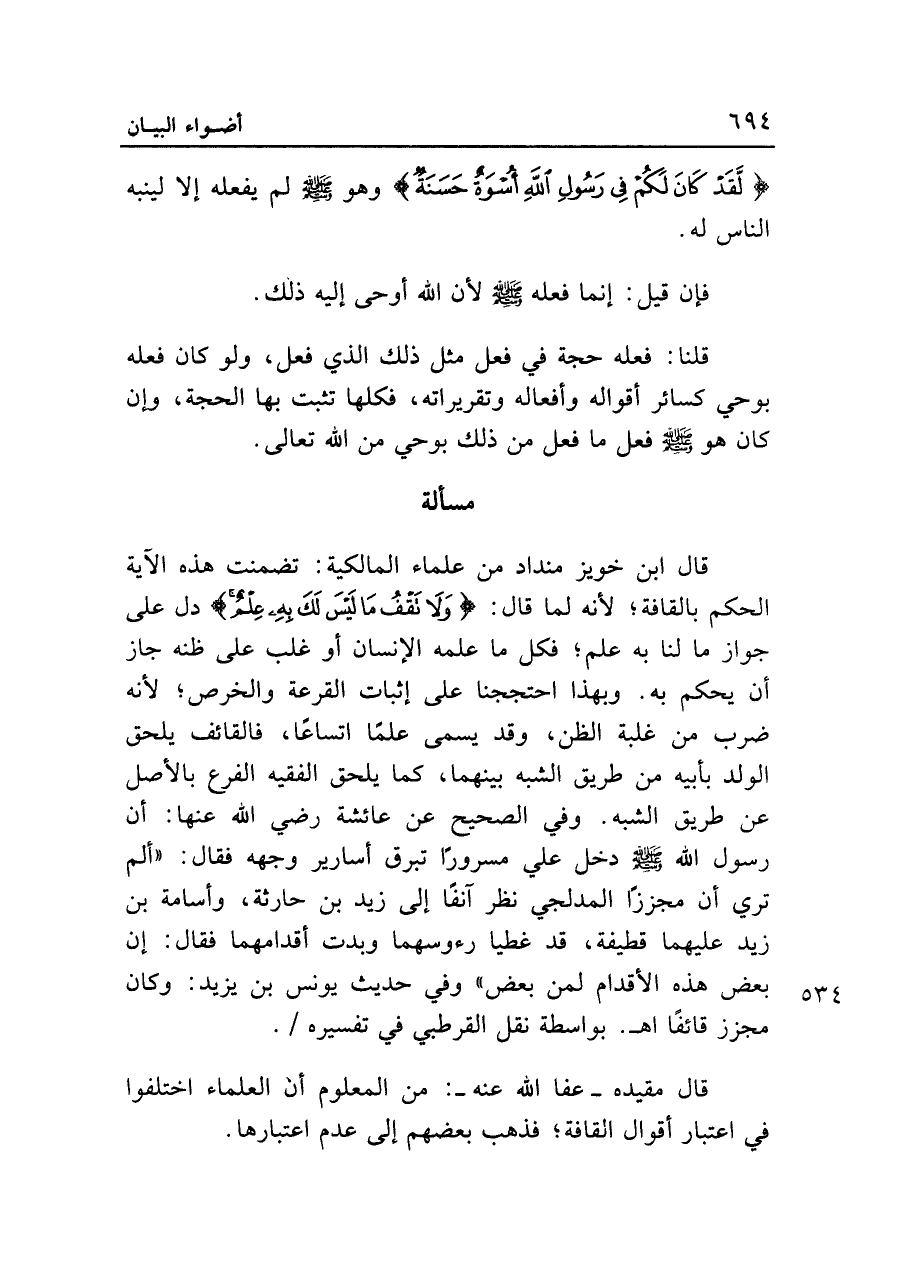 ٦٩٤ أضواء البيان
﴿ لَّقَدْ كَانَ لَكُمْ فِي رَسُولِ ٱللَّهِ أُسْوَةٌ حَسَنَةٌ ﴾ وهو ﷺ لم يفعله إلا لينبه
الناس له.
فإن قيل: إنما فعله ﷺ لأن الله أوحى إليه ذلك.
قلنا: فعله حجة في فعل مثل ذلك الذي فعل، ولو كان فعله
بوحي كسائر أقواله وأفعاله وتقريراته، فكلها تثبت بها الحجة، وإن
كان هو ﷺ فعل ما فعل من ذلك بوحي من الله تعالى.
مسألة
قال ابن خويز منداد من علماء المالكية: تضمنت هذه الآية
الحكم بالقافة؛ لأنه لما قال: ﴿ وَلَا تَقْفُ مَا لَيْسَ لَكَ بِهِۦ عِلْمٌ ﴾ دل على
جواز ما لنا به علم؛ فكل ما علمه الإنسان أو غلب على ظنه جاز
أن يحكم به. وبهذا احتججنا على إثبات القرعة والخرص؛ لأنه
ضرب من غلبة الظن، وقد يسمى علمًا اتساعًا، فالقائف يلحق
الولد بأبيه من طريق الشبه بينهما، كما يلحق الفقيه الفرع بالأصل
عن طريق الشبه. وفي الصحيح عن عائشة رضي الله عنها: أن
رسول الله ﷺ دخل علي مسرورًا تبرق أسارير وجهه فقال: «ألم
تري أن مجززًا المدلجي نظر آنفًا إلى زيد بن حارثة، وأسامة بن
زيد عليهما قطيفة، قد غطيا رءوسهما وبدت أقدامهما فقال: إن
بعض هذه الأقدام لمن بعض» وفي حديث يونس بن يزيد: وكان ٥٣٤
مجزز قائفًا اهـ. بواسطة نقل القرطبي في تفسيره / .
قال مقيده ـ عفا الله عنه ـ: من المعلوم أن العلماء اختلفوا
في اعتبار أقوال القافة؛ فذهب بعضهم إلى عدم اعتبارها.